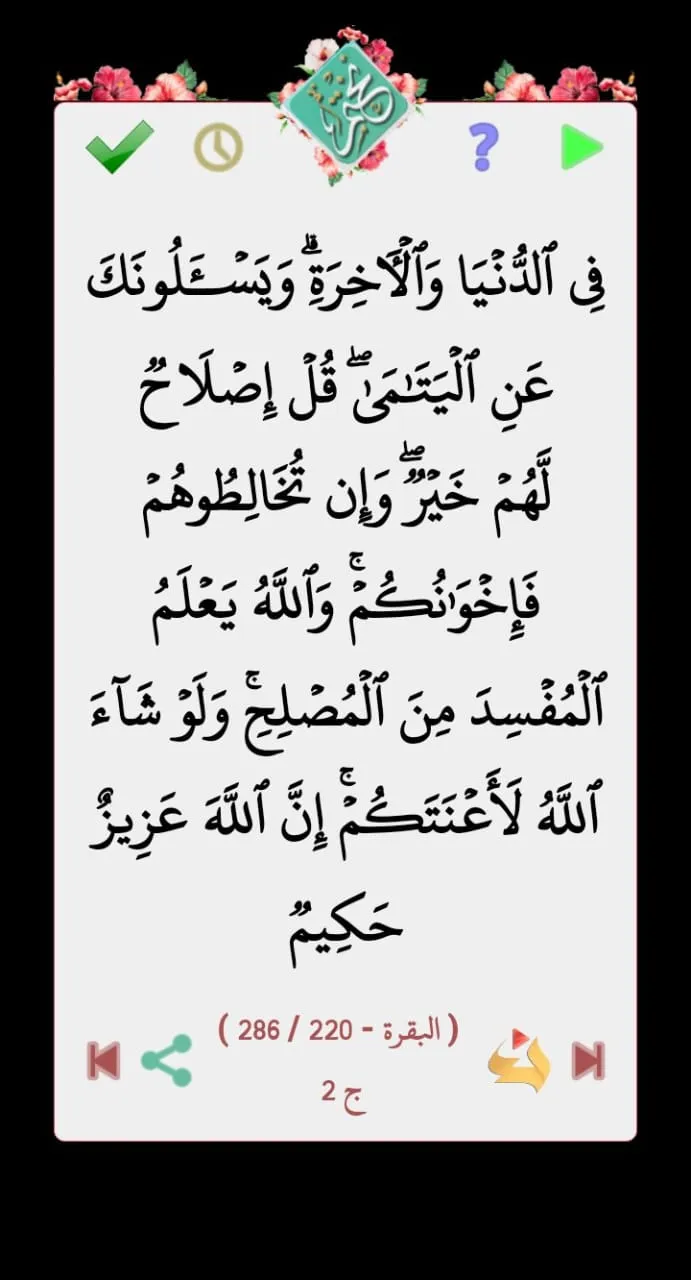 فِى ٱلدُّنۡيَا وَٱلۡأٓخِرَةِۗ وَيَسۡـَٔلُونَكَ
عَنِ ٱلۡيَتَٰمَىٰۖ قُلۡ إِصۡلَاحٞ
لَّهُمۡ خَيۡرٞۖ وَإِن تُخَالِطُوهُمۡ
فَإِخۡوَٰنُكُمۡۚ وَٱللَّهُ يَعۡلَمُ
ٱلۡمُفۡسِدَ مِنَ ٱلۡمُصۡلِحِۚ وَلَوۡ شَآءَ
ٱللَّهُ لَأَعۡنَتَكُمۡۚ إِنَّ ٱللَّهَ عَزِيزٌ
حَكِيمٞ
( البقرة - 220 / 286 )
ج 2